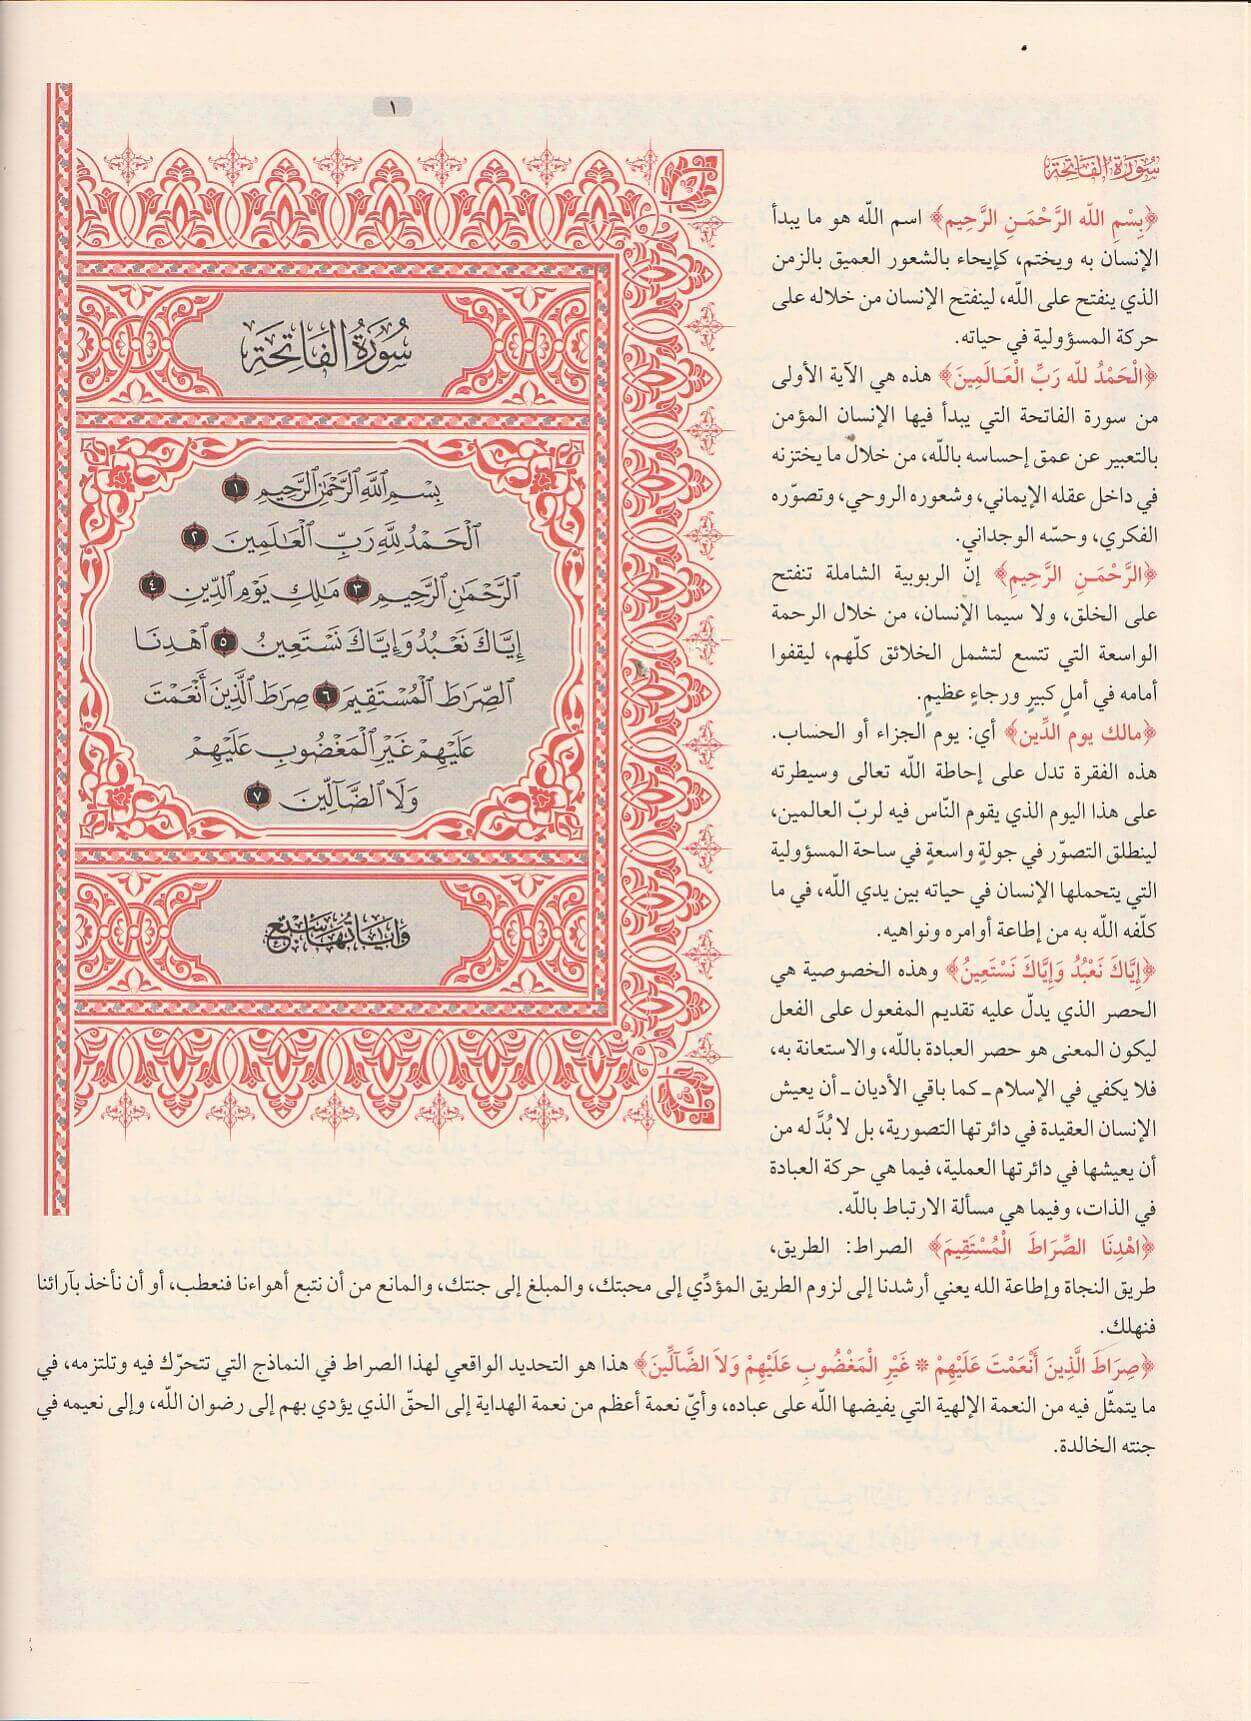 ١
سُورَةُ الفَاتِحَة
﴿بِسْمِ اللّه الرَّحْمَـنِ الرَّحِيم﴾ اسم اللّه هو ما يبدأ
الإنسان به ويختم، كإيحاء بالشعور العميق بالزمن
الذي ينفتح على اللّه، لينفتح الإنسان من خلاله على
حركة المسؤولية في حياته.
﴿الْحَمْدُ للّه رَبِّ الْعَـالَمِينَ﴾ هذه هي الآية الأولى
من سورة الفاتحة التي يبدأ فيها الإنسان المؤمن
بالتعبير عن عمق إحساسه باللّه، من خلال ما يختزنه
في داخل عقله الإيماني، وشعوره الروحي، وتصوّره
الفكري، وحسّه الوجداني.
﴿الرَّحْمَـنِ الرَّحِيمِ﴾ إنّ الربوبية الشاملة تنفتح
على الخلق، ولا سيما الإنسان، من خلال الرحمة
الواسعة التي تتسع لتشمل الخلائق كلّهم، ليقفوا
أمامه في أملٍ كبيرٍ ورجاءٍ عظيمٍ.
﴿مالك يوم الدِّين﴾ أي: يوم الجزاء أو الحساب.
هذه الفقرة تدل على إحاطة اللّه تعالى وسيطرته
على هذا اليوم الذي يقوم النّاس فيه لربّ العالمين،
لينطلق التصوّر في جولةٍ واسعةٍ في ساحة المسؤولية
التي يتحملها الإنسان في حياته بين يدي اللّه، في ما
كلّفه اللّه به من إطاعة أوامره ونواهيه.
﴿إِيَّاكَ نَعْبُدُ وَإِيَّاكَ نَسْتَعِينُ﴾ وهذه الخصوصية هي
الحصر الذي يدلّ عليه تقديم المفعول على الفعل
ليكون المعنى هو حصر العبادة باللّه، والاستعانة به،
فلا يكفي في الإسلام ـ كما باقي الأديان ـ أن يعيش
الإنسان العقيدة في دائرتها التصورية، بل لا بُدَّ له من
أن يعيشها في دائرتها العملية، فيما هي حركة العبادة
في الذات، وفيما هي مسألة الارتباط باللّه.
﴿اهْدِنَا الصِّرَاطَ الْمُسْتَقِيمَ﴾ الصراط: الطريق،
طريق النجاة وإطاعة الله يعني أرشدنا إلى لزوم الطريق المؤدِّي إلى محبتك، والمبلغ إلى جنتك، والمانع من أن نتبع أهواءنا فنعطب، أو أن نأخذ بآرائنا
فنهلك.
﴿صِرَاطَ الَّذِينَ أَنْعَمْتَ عَلَيْهِمْ * غَيْرِ الْمَغْضُوبِ عَلَيْهِمْ وَلاَ الضَّآلِّينَ﴾ هذا هو التحديد الواقعي لهذا الصراط في النماذج التي تتحرّك فيه وتلتزمه، في
ما يتمثّل فيه من النعمة الإلهية التي يفيضها اللّه على عباده، وأيّ نعمة أعظم من نعمة الهداية إلى الحقّ الذي يؤدي بهم إلى رضوان اللّه، وإلى نعيمه في
جنته الخالدة.
سُورَةُ الفَاتِحَة
بِسْمِ ٱللَّهِ ٱلرَّحْمَٰنِ ٱلرَّحِيمِ ١
ٱلْحَمْدُ لِلَّهِ رَبِّ ٱلْعَٰلَمِينَ ٢
ٱلرَّحْمَٰنِ ٱلرَّحِيمِ ٣ مَٰلِكِ يَوْمِ ٱلدِّينِ ٤
إِيَّاكَ نَعْبُدُ وَإِيَّاكَ نَسْتَعِينُ ٥ ٱهْدِنَا
ٱلصِّرَاطَ ٱلْمُسْتَقِيمَ ٦ صِرَاطَ ٱلَّذِينَ أَنْعَمْتَ
عَلَيْهِمْ غَيْرِ ٱلْمَغْضُوبِ عَلَيْهِمْ
وَلَا ٱلضَّآلِّينَ ٧
وَآيَاتُهَا سَبْعٌ